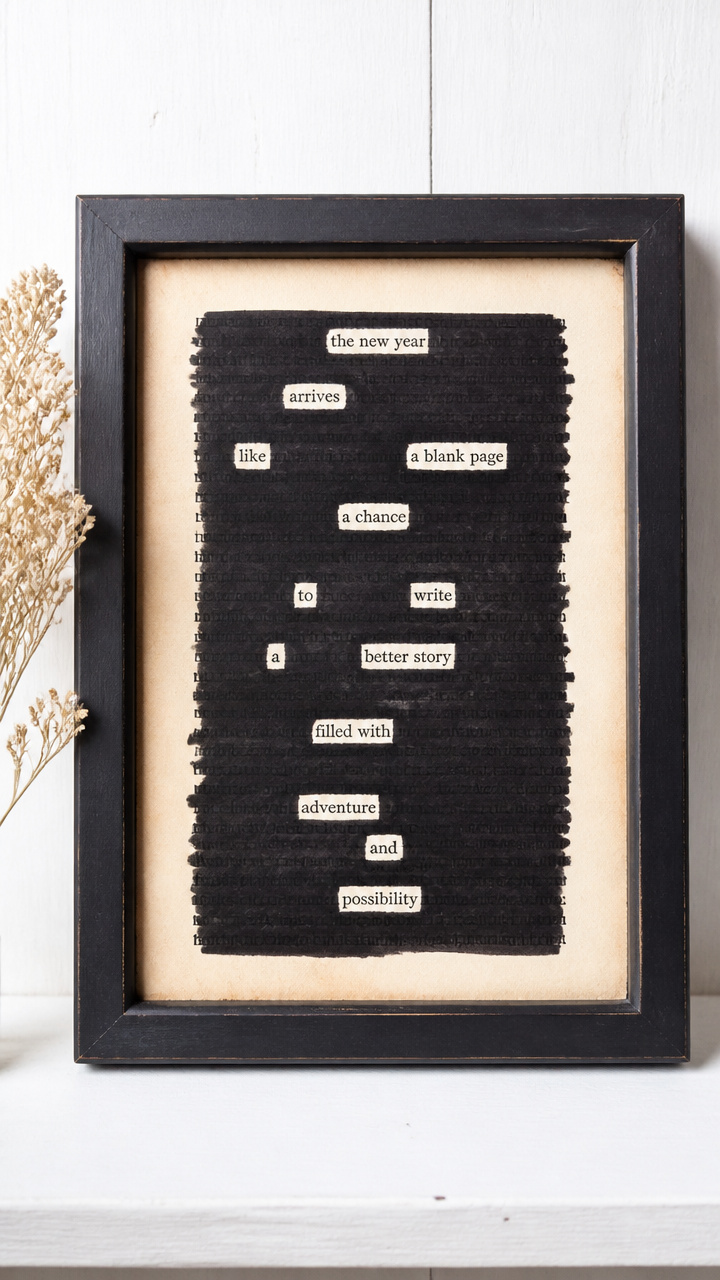 the new year
arrives
like a blank page
a chance
to write
a better story
filled with
adventure
and
possibility